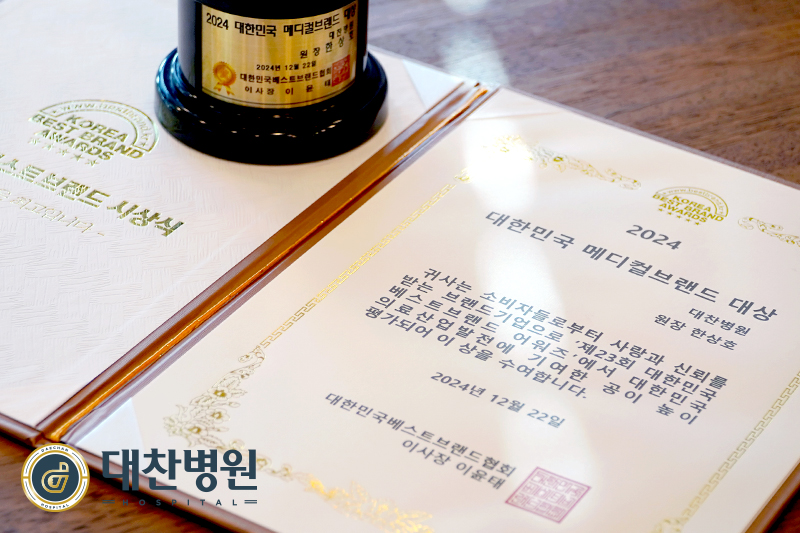 2024 대한민국 메디컬브랜드 대상
대찬병원
원장 한상호
2024년 12월 22일
대한민국베스트브랜드협회
이사장 이윤태
KOREA
BEST BRAND
AWARDS
스트브랜드 시상식
KOREA
BEST BRAND
AWARDS
2024
대한민국 메디컬브랜드 대상
대찬병원
원장 한상호
귀사는 소비자들로부터 사랑과 신뢰를
받는 브랜드기업으로 '제23회 대한민국
베스트브랜드 어워즈'에서 대한민국
의료산업발전에 기여한 공이 높이
평가되어 이 상을 수여합니다.
2024년 12월 22일
대한민국베스트브랜드협회
이사장 이윤태
DAECHAN
HOSPITAL
대찬병원
HOSPITAL